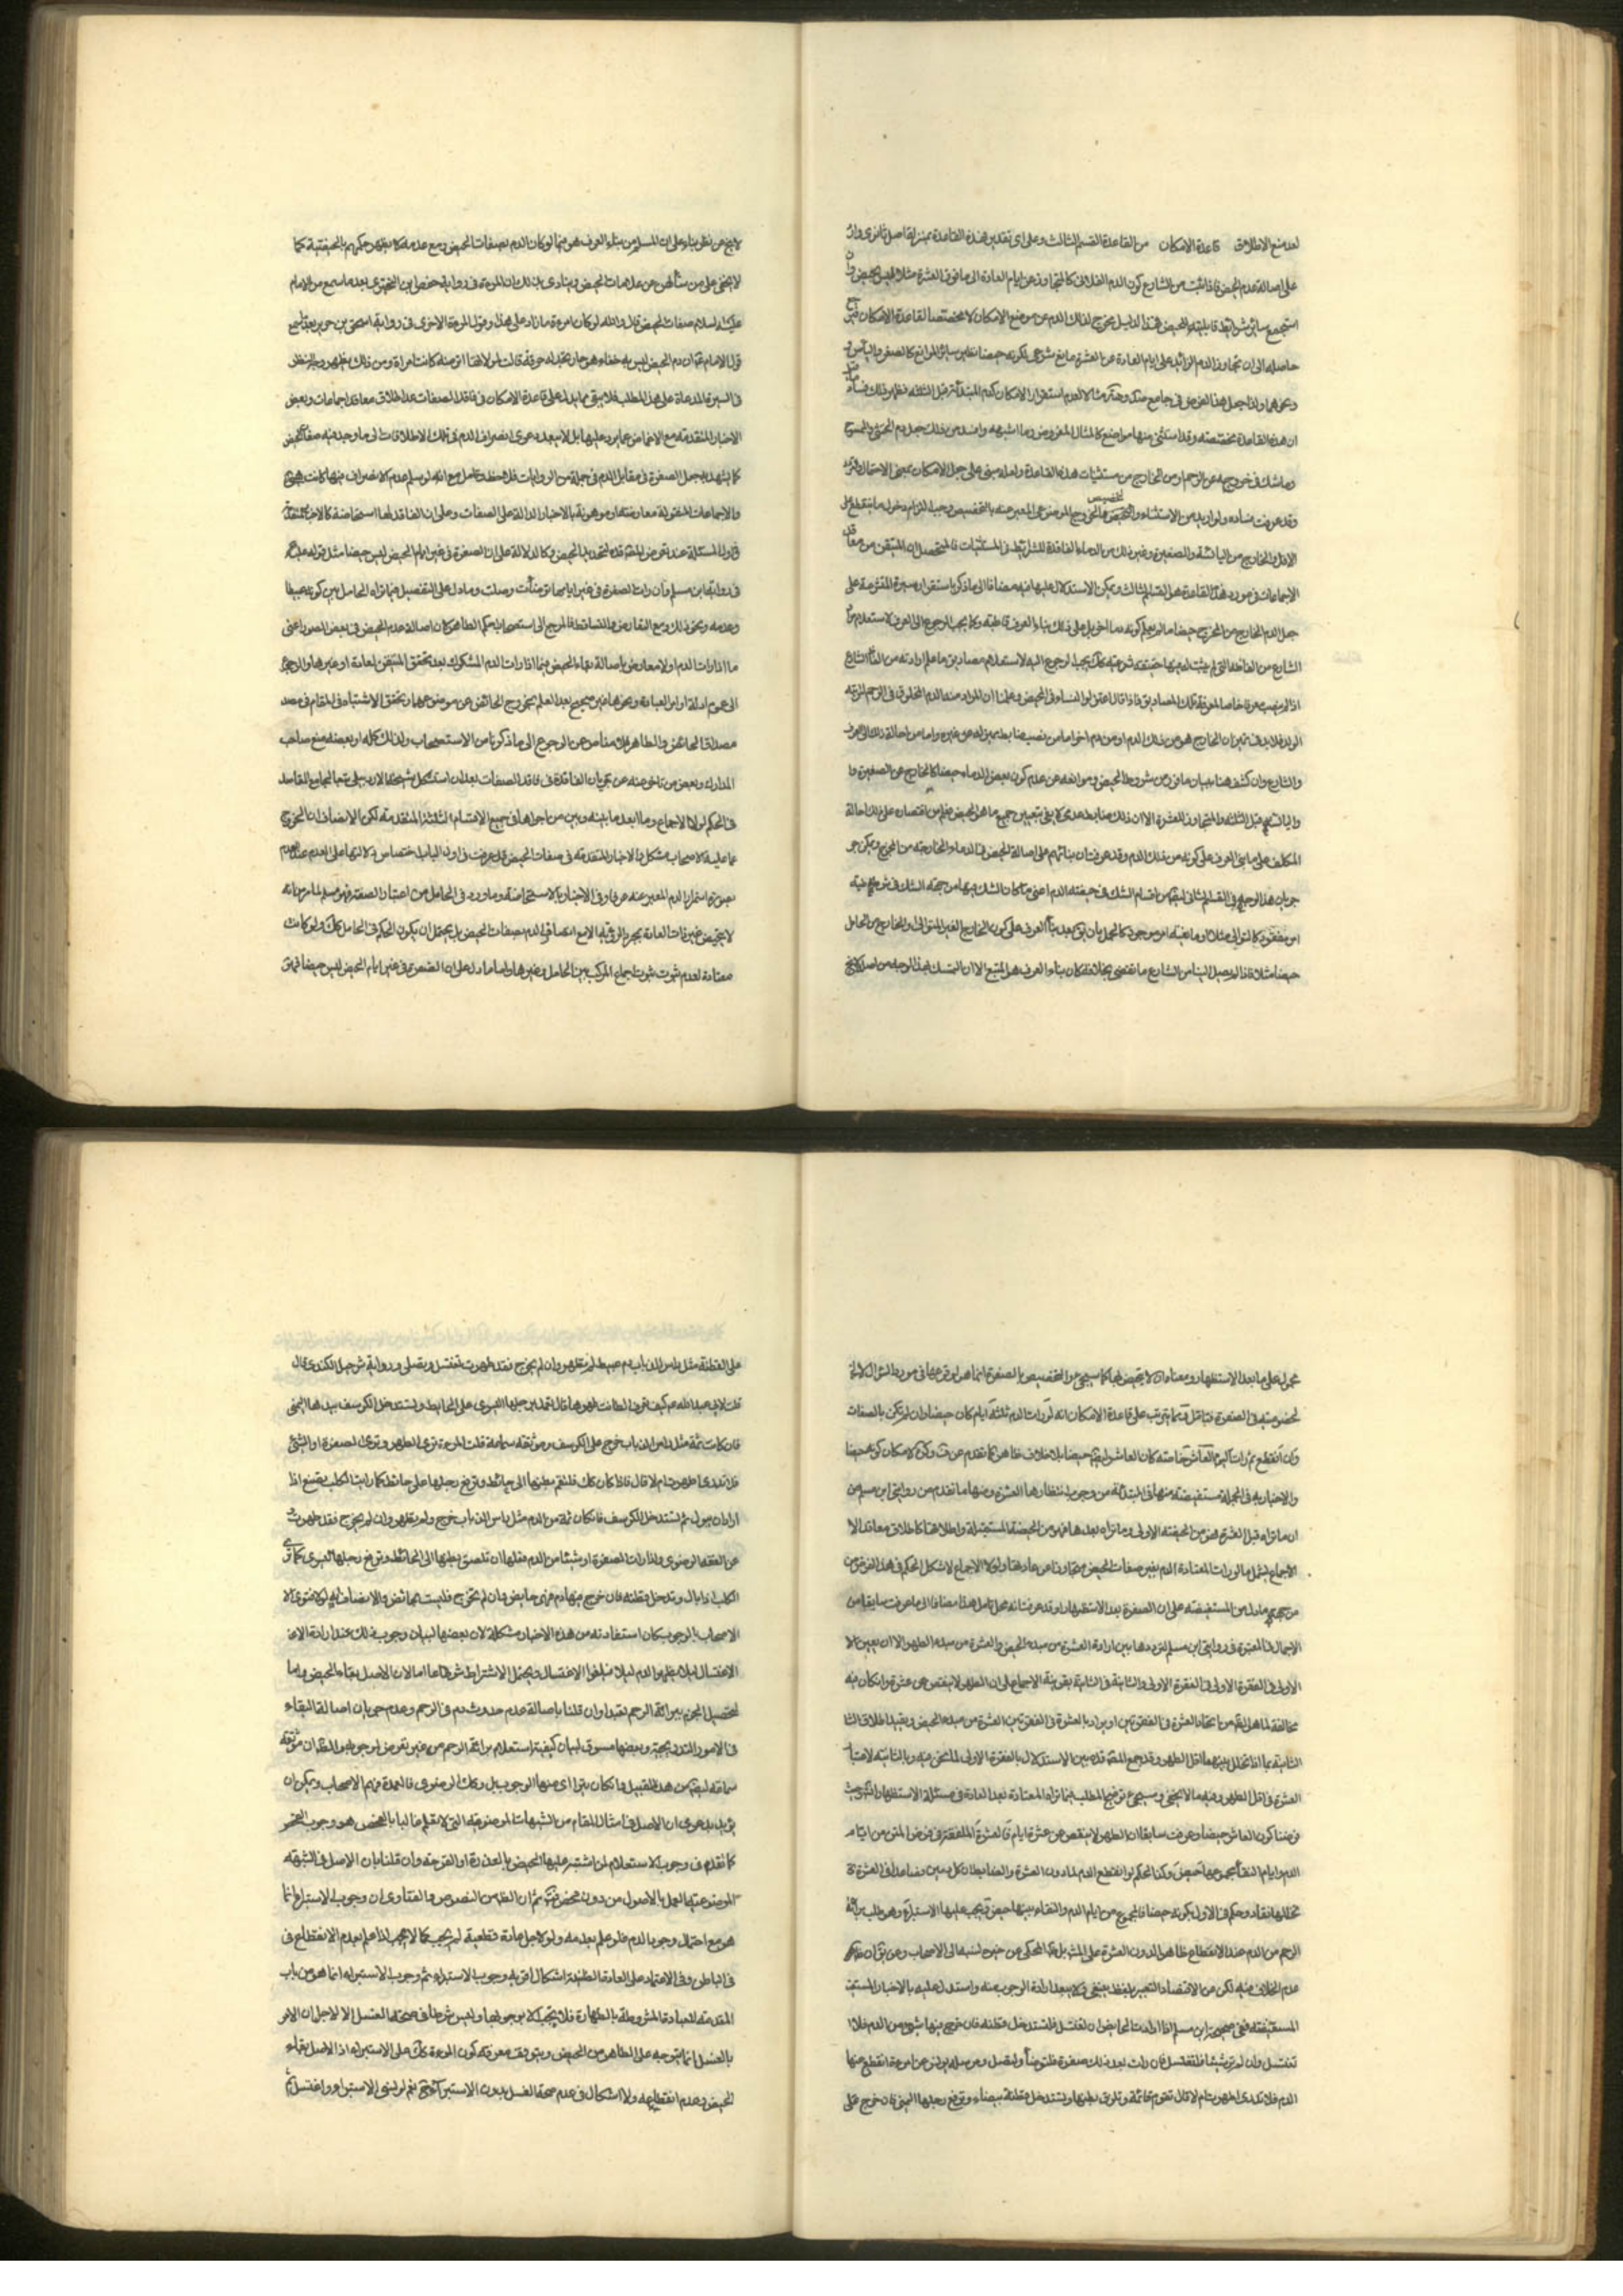 لعدم منع الاطلاق قاعدة الامكان من القاعدة القسم الثالث وعلى اى تقدير فهذه القاعدة بمنزلة اصل ثانوى وارد
على اصالة عدم الحيض فاذا ثبت من الشارع كون الدم الفلانى كالمتجاوز عن ايام العادة الى ما فوق العشرة مثلا ليس بحيض وان
استجمع سائر شرائط قابليته للحيض فهذا الدليل مخرج لذلك الدم عن موضع الامكان لا مخصصا لقاعدة الامكان
حاصله الى ان تجاوز الدم الزائد على ايام العادة عن العشرة مانع شرعى لكونه حيضا نظير سائر الموانع كالصغر والياس
ونحوهما ولذا جعل هذا الفرض فى جامع صد وغيره مثالا لعدم استقرار الامكان كدم المبتدأة قبل الثلثة فظهر بذلك فساد
ان هذه القاعدة مخصصة وقد استثنى منها مواضع كالمثال المفروض وما اشبهه وافسد من ذلك جعل دم الخنثى والممسوح
وما شك فى خروجه عن الرحم او من الخارج من مستثنيات هذه القاعدة ولعله مبنى على جعل الامكان بمعنى الاحتمال
وقد عرفت فساده ولو اريد من الاستثناء والتخصيص الخروج الموضوعى المعبر عنه بالتخصيص وجب التزام دخول ما ينقطع على
الاقل والخارج من اليائسة والصغيرة وغير ذلك من الدماء الفاقدة للشرائط فى المستثنيات فالمتحصل ان المتيقن من معاقد
الاجماعات فى مورد هذه القاعدة هو القسم الثالث ويمكن الاستدلال عليها فيه مضافا الى ما ذكر باستقرار سيرة المتشرعة على
جعل الدم الخارج من المخرج حيضا ما لم يعلم كونه دما اخر بل على ذلك بناء العرف قاطبة وكما يجب الرجوع الى العرف لاستعلام مراد
الشارع من الفاظه التى لم يثبت لديها حقيقة شرعية كك يجب الرجوع اليه لاستعلام مصاديق ما علم ارادته من الفاظ الشارع
اذا لم ينصب عرفا خاصا لمعرفة تلك المصاديق فاذا قال اعتزلوا النساء فى المحيض وعلمنا ان المراد منه الدم المخلوق فى الرحم لتربية
الولد فلا بد فى تميز ان الخارج هو من ذلك الدم او من دم اخر اما من نصب ضابط يميزه عن غيره واما من احالة ذلك الى العرف
والشارع وان كشف هنا ببيان ما فرق من شروط الحيض وموانعه عن عدم كون بعض الدماء حيضا كالخارج عن الصغيرة وا
واليائسة وقبل الثلثة والمتجاوز للعشرة الا ان ذلك ضابط عدمى لا يفى بتعيين جميع ما هو الحيض فعلم من اقتصاره على ذلك احالة
المكلف على ما بنى العرف على كونه من ذلك الدم وقد عرفت ان بنائهم على اصالة الحيض فى الدماء الخارجة من المخرج ويمكن جر
جريان هذا الوجه فى القسم الثانى ايضا من اقسام الشك فى حيضية الدم اعنى ما كان الشك فيها من جهة الشك فى شرطية
امر مفقود كالتوالى مثلا او مانعية امر موجود كالحمل بان يق بعد بناء العرف على كون الخارج الغير المتوالى والخارج من الحامل
حيضا مثلا فاذا لم يصل الينا من الشارع ما يقتضى خلافه كان بناء العرف هو المتبع الا ان التمسك بهذا الوجه من اصله
لا يخ عن نظر بناء على ان المسلم من بناء العرف هو فيما لو كان الدم بصفات الحيض ومع عدمه فلا يظهر حكمهم بالحيضية كما
لا يخفى على من سألهن عن علامات الحيض وينادى بذلك ان المرءة فى رواية حفص ابن البخترى بعد ما سمع من الامام
عليه السلام صفات الحيض قال والله لو كان امرءة ما زاد على هذا وقول المرءة الاخرى فى رواية اسحق بن جرير بعد ما سمع
قول الامام ع ان دم الحيض ليس به خفاء هو حار تجد له حرقة قالت لمولاتها اترينه كانت امراة ومن ذلك يظهر وجه النظر
فى السيرة المدعاة على هذا المطلب فلا يبقى ما يدل على قاعدة الامكان فى فاقد الصفات عدا اطلاق معاقد اجماعات وبعض
الاخبار المتقدمة مع الاغماض عما يرد عليها بل لا يبعد دعوى انصراف الدم فى تلك الاطلاقات الى ما وجد فيه صفات الحيض
كما يشهد به جعل الصفرة فى مقابل الدم فى جملة من الروايات فلاحظ وتامل مع انه لو سلم عدم الانصراف فيها كانت هى
والاجماعات المنقولة معارضتها وموهونة بالاخبار الدالة على الصفات وعلى ان الفاقد لها استحاضة كالاخبار المتقدمة
فى اول المسئلة عند تعرض المص قده لتحديد الحيض وكالدلالة على ان الصفرة فى غير ايام الحيض ليس حيضا مثل قوله ع
فى رواية ابن مسلم وان رات الصفرة فى غير ايامها توضأت وصلت وما دل على التفصيل فيما تراه الحامل بين كونه عبيطا
وعدمه ونحو ذلك ومع التعارض والتساقط فالمرجع الى استصحاب حكم الطاهر كان اصالة عدم الحيض فى بعض الصور اعنى
ما اذا رات الدم اولا معارض باصالة بقاء الحيض فيما اذا رات الدم المشكوك بعد تحقق المتيقن لعادة او غيرها والرجوع
الى عموم ادلة اوامر العبادة ونحوها غير صحيح بعد العلم بخروج الحائض عن موضوعها وتحقق الاشتباه فى المقام فى مصد
مصداق الحائض والطاهر فلا مناص من الرجوع الى ما ذكرنا من الاستصحاب ولذلك كله او بعضه منع صاحب
المدارك وبعض من تاخر عنه عن جريان القاعدة فى فاقد الصفات بعد ان استشكل شيخنا الاردبيلى تبعا لجامع المقاصد
فى الحكم لولا الاجماع وما ابعد ما بينه وبين من اجراها فى جميع الاقسام الثلثة المتقدمة لكن الانصاف ان الخروج
عما عليه الاصحاب مشكل والاخبار المتقدمة فى صفات الحيض قد عرفت فى اول الباب اختصاص دلالتها على العدم عند العدم
بصورة استمرار الدم المعبر عنه عرفا وفى الاخبار بالاستحاضة وما ورد فى الحامل من اعتبار الصفة فهو مسلم لما مر من انه
لا يتحيض غير ذات العادة بمجرد الرؤية الا مع اتصاف الدم بصفات الحيض بل يحتمل ان يكون الحكم فى الحامل كك ولو كانت
معتادة لعدم ثبوت اجماع المركب بين الحامل وغيرها واما ما دل على ان الصفرة فى غير ايام الحيض ليس حيضا فهو
محمول على ما بعد الاستظهار ومعناه ان لا تحيض فيها كما سيجئ والتخصيص بالصفرة انما هو لوقوعها فى مورد السؤال لا
لخصوصية فى الصفرة فتامل ثم مما يترتب على قاعدة الامكان انه لو رات الدم ثلثة ايام كان حيضا وان لم تكن بالصفات
وان انقطع ثم رات اليوم العاشر خاصة كان العاشر ايضا حيضا بلا خلاف ظاهر كما تقدم عن وكرة لامكان كونه حيضا
والاخبار به فى الجملة مستفيضة منها فى المبتدئة من وجوب انتظارها العشرة ومنها ما تقدم من روايتى ابن مسلم من
ان ما تراه قبل العشرة فهو من الحيضة الاولى وما تراه بعدها فهو من الحيضة المستقبلة واطلاقها كاطلاق معاقد الا
الاجماع يشمل ما لو رات المعتادة الدم بغير صفات الحيض متجاوزا عن عادتها ولولا الاجماع لاشكل الحكم فى هذا الفرض من
من جهة ما دل من المستفيضة على ان الصفرة بعد الاستظهار او قد عرفت انه محل تامل هذا مضافا الى ما عرفت سابقا من
الاجمال فى العشرة فى روايتى ابن مسلم لترددها بين ارادة العشرة من مبدء الحيض والعشرة من مبدء الطهر الا ان يعين الا
الاولى فى الفقرة الاولى والثانية فى الثانية بقرينة الاجماع على ان الطهر لا ينقص عن عشرة وان كان فيه
مخالفة لما هو الظ من اتحاد العشرة فى الفقرتين او يراد بالعشرة فى الفقرتين العشرة من مبدء الحيض ويقيد اطلاق الث
الثانية بما اذا تخلل بينهما اقل الطهر وقد جمع المص قده بين الاستدلال بالفقرة الاولى لما نحن فيه وبالثانية لاعتبا
العشرة فى اقل الطهر وفيه ما لا يخفى وسيجئ توضيح المطلب فيما تراه المعتادة بعد العادة فى مسئلة الاستظهار ثم حيث
فرضنا كون العاشر حيضا وعرفت سابقا ان الطهر لا ينقص عن عشرة ايام فالعشرة الملفقة فى فرض المتن من ايام
الدم وايام النقاء مجموعها حيض وكذا الحكم لو انقطع الدم لما دون العشرة والضابط ان كل دمين فصاعدا فى العشرة ة
تخللها نقاء وحكم فى الاول بكونه حيضا فالمجموع من ايام الدم والنقاء بينها حيض ويجب عليها الاستبراء وهو طلب برائة
الرحم من الدم عند الانقطاع ظاهرا لدون العشرة على المش بل المحكى عن خيرة نسبه الى الاصحاب وعن
عدم الخلاف فيه لكن عن الاقتصاد التعبير بلفظ ينبغى ولا يبعد ارادة الوجوب منه واستدل عليه بالاخبار المستفيـ
المستفيضة ففى صحيحة ابن مسلم اذا ارادت الحائض ان تغتسل فلتستدخل قطنة فان خرج فيها شئ من الدم فلا
تغتسل وان لم تر شيئا فلتغتسل فان رات بعد ذلك صفرة فلتوضأ ولتصل ومرسلة يونس عن امرءة انقطع عنها
الدم فلا تدرى اطهرت ام لا قال تقوم قائمة وتلزق بطنها وتستدخل قطنة بيضاء وترفع رجلها اليمنى فان خرج على
على القطنة مثل راس الذباب دم عبيط لم تطهر وان لم يخرج فقد طهرت تغتسل وتصلى ورواية شرحبيل الكندى قال
قلت لابى عبد الله ع كيف تعرف الطامث طهرها قال تعتمد برجلها اليسرى على الحائط وتستدخل الكرسف بيدها اليمنى
فان كان ثمة مثل راس الذباب خرج على الكرسف وموثقة سماعة قلت المرءة ترى الطهر وترى الصفرة او الشئ
فلا تدرى اطهرت ام لا قال فاذا كان كك فلتقم بطنها الى حائط وترفع رجلها على حائط كما رايت الكلب يصنع اذا
اراد ان يبول ثم تستدخل الكرسف فاذا كان ثمة من الدم مثل راس الذباب خرج ولم تطهر وان لم يخرج فقد طهرت
عن الفقه الرضوى واذا رات الصفرة او شيئا من الدم فعليها ان تلصق بطنها الى الحائط وترفع رجلها اليسرى كما ترى
الكلب اذا بال وتدخل قطنة فان خرج فيها دم فهى حايض وان لم يخرج فليست بحائض والانصاف انه لولا فتوى الا
الاصحاب بالوجوب كان استفادته من هذه الاخبار مشكلة لان بعضها لبيان وجوب ذلك عند ارادة الاغـ
الاغتسال لئلا يظهر الدم فيلغوا الاغتسال ويحتمل الاشتراط شرعا اما لان الاصل بقاء الحيض واما
لتحصيل الجزم ببرائة الرحم تعبدا وان قلنا باصالة عدم حدوث دم فى الرحم وعدم جريان اصالة البقاء
فى الامور التدريجية وبعضها مسوق لبيان كيفية استعلام برائة الرحم من غير تعرض لوجوبه والظ ان موثقة
سماعة ايضا من هذا القبيل وان كان يترا اى منها الوجوب بل وكك الرضوى فالعمدة فهم الاصحاب ويمكن ان
يؤيد بدعوى ان الاصل فى امثال المقام من الشبهات الموضوعية التى لا تعلم غالبا الا بالفحص هو وجوب الفحص
كما تقدم فى وجوب الاستعلام لمن اشتبه عليها الحيض بالعذرة او القرحة وان قلنا بان الاصل فى الشبهة
الموضوعية العمل بالاصول من دون فحص ثم ان الظ من النصوص والفتاوى ان وجوب الاستبراء انما
هو مع احتمال وجود الدم فلو علم بعدمه ولو لاجل عادة قطعية لم يجب كما لا يجب اذا علم بعدم الانقطاع فى
فى الباطن وفى الاعتماد على العادة الظنية اشكال اقربه وجوب الاستبراء ثم وجوب الاستبراء انما هو من باب
المقدمة للعبادة المشروطة بالطهارة فلا يجب الا بوجوبها وليس شرطا فى صحة الغسل الا لاجل ان الامر
بالغسل انما يتوجه على الطاهر من الحيض ويتوقف معرفة كون المرءة كك على الاستبراء اذ الاصل بقاء
الحيض وعدم انقطاعه ولا اشكال فى عدم صحة الغسل بدون الاستبراء ح نعم لو نسى الاستبراء واغتسل ثم